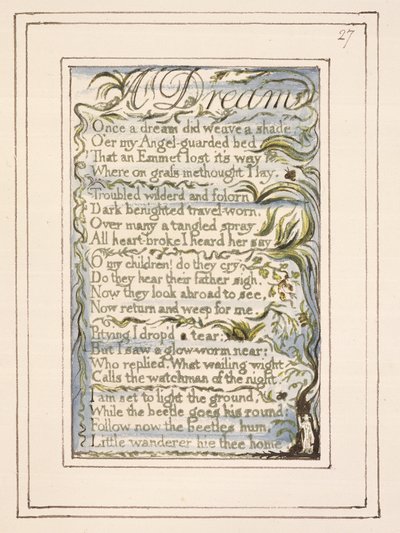 27
A Dream
Once a dream did weave a shade,
O'er my Angel-guarded bed,
That an Emmet lost it's way
Where on grass methought I lay.
Troubled wilderd and folorn
Dark benighted travel-worn,
Over many a tangled spray,
All heart-broke I heard her say.
O my children! do they cry,
Do they hear their father sigh.
Now they look abroad to see,
Now return and weep for me.
Pitying I dropd a tear:
But I saw a glow-worm near:
Who replied. What wailing wight
Calls the watchman of the night.
I am set to light the ground,
While the beetle goes his round:
Follow now the beetles hum,
Little wanderer hie thee home.